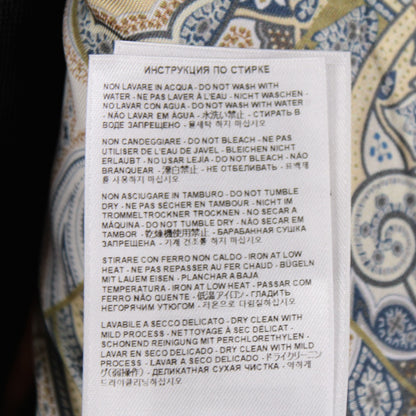 ИНСТРУКЦИЯ ПО СТИРКЕ
NON LAVARE IN ACQUA - DO NOT WASH WITH
WATER - NE PAS LAVER À L'EAU - NICHT WASCHEN -
NO LAVAR CON AGUA - DO NOT WASH WITH WATER
- NÃO LAVAR EM ÁGUA - 水洗い禁止 - СТИРАТЬ В
ВОДЕ ЗАПРЕЩЕНО - 물세탁 하지 마십시오
NON CANDEGGIARE - DO NOT BLEACH - NE PAS
UTILISER DE L'EAU DE JAVEL - BLEICHEN NICHT
ERLAUBT - NO USAR LEJIA - DO NOT BLEACH - NÃO
BRANQUEAR - 漂白禁止 - НЕ ОТБЕЛИВАТЬ - 표백제
를 사용하지 마십시오
NON ASCIUGARE IN TAMBURO - DO NOT TUMBLE
DRY - NE PAS SÉCHER EN TAMBOUR - NICHT IM
TROMMELTROCKNER TROCKNEN - NO SECAR A
MÁQUINA - DO NOT TUMBLE DRY - NÃO SECAR EM
TAMBOR - 乾燥機使用禁止 - БАРАБАННАЯ СУШКА
ЗАПРЕЩЕНА - 기계 건조를 하지 마십시오
STIRARE CON FERRO NON CALDO - IRON AT LOW
HEAT - NE PAS REPASSER AU FER CHAUD - BÜGELN
MIT LAUEM EISEN - PLANCHAR A BAJA
TEMPERATURA - IRON AT LOW HEAT - PASSAR COM
FERRO NÃO QUENTE - 低温アイロン - ГЛАДИТЬ
НЕГОРЯЧИМ УТЮГОМ - 저온으로 다림질하십시오
LAVABILE A SECCO DELICATO - DRY CLEAN WITH
MILD PROCESS - NETTOYAGE À SEC DÉLICAT -
SCHONEND REINIGUNG MIT PERCHLORETHYLEN -
LAVAR EN SECO DELICADO - DRY CLEAN WITH MILD
PROCESS - LAVAR A SECO DELICADO - ドライクリーニン
グ(弱操作) - ДЕЛИКАТНАЯ СУХАЯ ЧИСТКА - 약하게
드라이클리닝하십시오